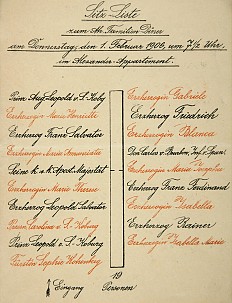 Sitz-Liste
zum Ah. Familien-Diner
am Donnerstag, den 1. Februar 1906, um 7½ Uhr.
im Alexander-Appartement.
Prinz Aug. Leopold v. S. Kobg
Erzherzogin Maria Henriette
Erzherzog Franz Salvator
Erzherzogin Maria Annunciata
Seine k. u. k. Apost. Majestät
Erzherzogin Maria Theresia
Erzherzog Leopold Salvator
Prinz Leopold v. S. Koburg
Fürstin Sophie Hohenberg
Erzherzogin Gabriele
Erzherzog Friedrich
Erzherzogin Blanca
Don Carlos v. Bourbon, Inf. v. Span.
Erzherzogin Maria Josepha
Erzherzog Franz Ferdinand
Erzherzogin Isabella
Erzherzog Rainer
Erzherzogin Isabella Maria
Eingang
19
Personen